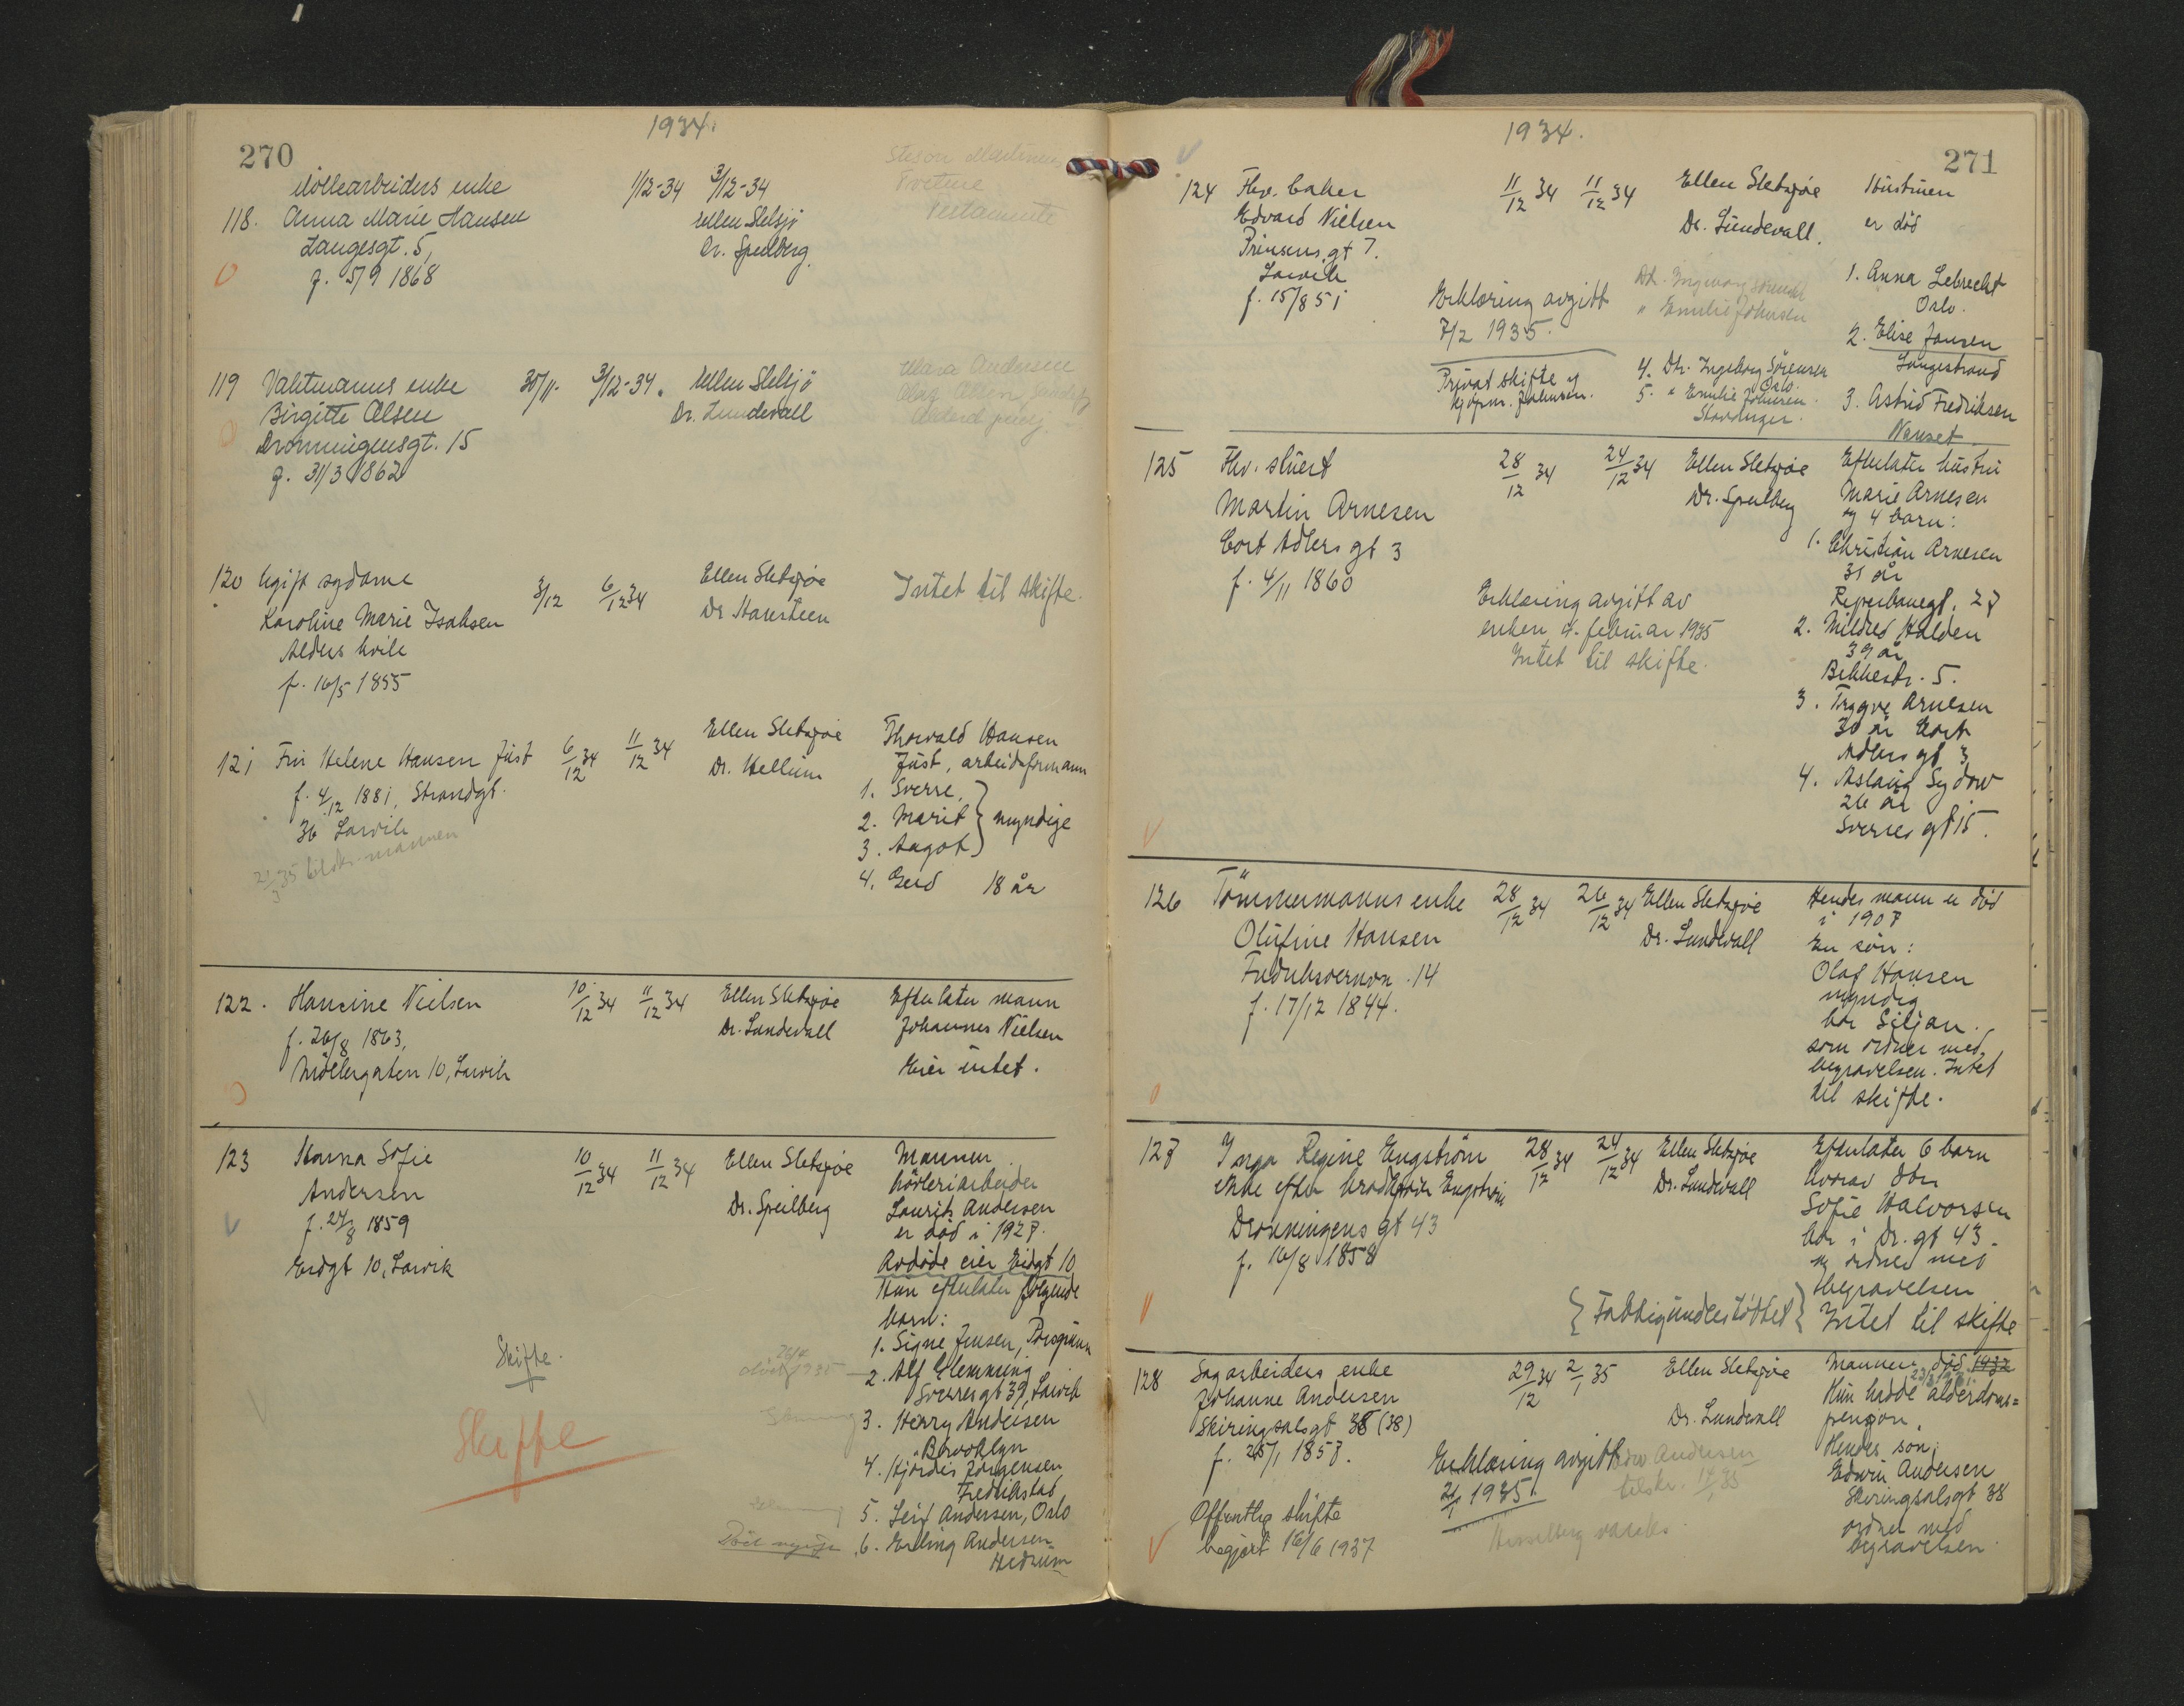 270
1934.
Møllearbeiders enke
118. Anna Marie Hansen
Langesgt. 5,
f. 5/9 1868
1/12-34 3/12-34
Ellen Sletsjö
Dr. Speilberg.
testamente
119 Vaktmanns enke
Birgitte Olsen
Dronningensgt. 15
f. 31/3 1862
30/11. 3/12-34.
Ellen Sletsjö
Dr. Lundevall
120 Ugift sydame
Karoline Marie Isaksen
Alders hvile
f. 16/5 1855
3/12 6/12 34
Ellen Sletsjøe
Dr Hansteen
Intet til skifte.
121 Fru Helene Hansen Just
f. 4/12 1881, Strandgt.
36 Larvik
21/3 35 mannen
6/12 34 11/12 34
Ellen Sletsjøe
Dr. Hellum
Thorvald Hansen
Just, arbeidsformann
1. Sverre,
2. Marit } myndige
3. Aagot
4. Gerd 18 år
122. Hansine Nielsen
f. 26/8 1863,
Möllergaten 10, Larvik
10/12 34 11/12 34
Ellen Sletsjøe
Dr. Lundevall
Efterlater mann
Johannes Nielsen
Eier intet.
123 Hanna Sofie
Andersen
f. 27/8 1859
Eidgt 10, Larvik
10/12 34 11/12 34
Ellen Sletsjøe
Dr. Speilberg
Mannen
høvleriarbeider
Laurits Andersen
er död i 1927.
Avdöde eier Eidgt 10
Hun efterlater følgende
barn:
1. Signe Jensen, Porsgrunn
2. Alf Flemming
Sverresgt 39, Larvik
3. Henry Andersen
Brooklyn
4. Hjørdis Jørgensen
Fredrikstad
5. Leif Andersen, Oslo
6. Erling Andersen
Hedrum
Skifte.
Skifte
1934.
271
124 Fhv. baker
Edvard Nielsen
Prinsens.gt 7.
Larvik
f. 15/8 51
11/12 34 11/12 34
Ellen Sletsjøe
Dr. Lundevall.
Hustruen
er död
1. Anna Lebrecht
Oslo.
2. Elise Jansen
Langestrand
3. Astrid Fredriksen
Nanset.
Erklæring avgitt
7/2 1935.
Dtr. Ingeborg Sørensen
" Emilie Johnsen
Privat skifte v/
kjøpm. Johnsen.
4. Dtr. Ingeborg Sørensen
Oslo.
5. " Emilie Johnsen
Stavanger.
125 Fhv. stuert
Martin Arnesen
Cort Adlers gt 3
f. 4/11 1860
28/12 34 24/12 34
Ellen Sletsjøe
Dr. Speilberg
Efterlater hustru
Marie Arnesen
og 4 barn:
1. Christian Arnesen
31 år
Reperbanegt. 27
2. Mildred Halden
39 år
Bekkestr. 5.
3. Trygve Arnesen
30 år Cort
Adlers gt 3
4. Aslaug Sydow
26 år
Sverres gt 15.
Erklæring avgitt av
enken 4. februar 1935
Intet til skifte.
126 Tömmermanns enke
Olufine Hansen
Fredriksvernvn. 14
f. 17/12 1844.
28/12 34 26/12 34
Ellen Sletsjøe
Dr. Lundevall
Hendes mann er död
i 1907
En sön:
Olaf Hansen
myndig
bor Siljan.
som ordner med
begravelsen. Intet
til skifte.
127 Inga Regine Engström
enke efter Engström
Dronningens gt 43
f. 16/8 1858
28/12 34 24/12 34
Ellen Sletsjøe
Dr. Lundevall
Efterlater 6 barn
hvorav dtr
Sofie Halvorsen
bor i Dr. gt 43.
og ordner med
begravelsen
{Fattigunderstöttet} Intet til skifte
128 Sagarbeiders enke
Johanne Andersen
Skiringsalsgt 38 (38)
f. 25/1 1857.
29/12 34 2/1 35
Ellen Sletsjøe
Dr. Lundevall
Mannen död 1932
Hun hadde alderdoms=
pensjon.
Hendes sön:
Edwin Andersen
Skiringsalsgt 38
ordner med
begravelsen.
Erklæring avgitt
21/1 1935.
Edw Andersen
tilskr.
Offentlig skifte
begjært 16/6 1937